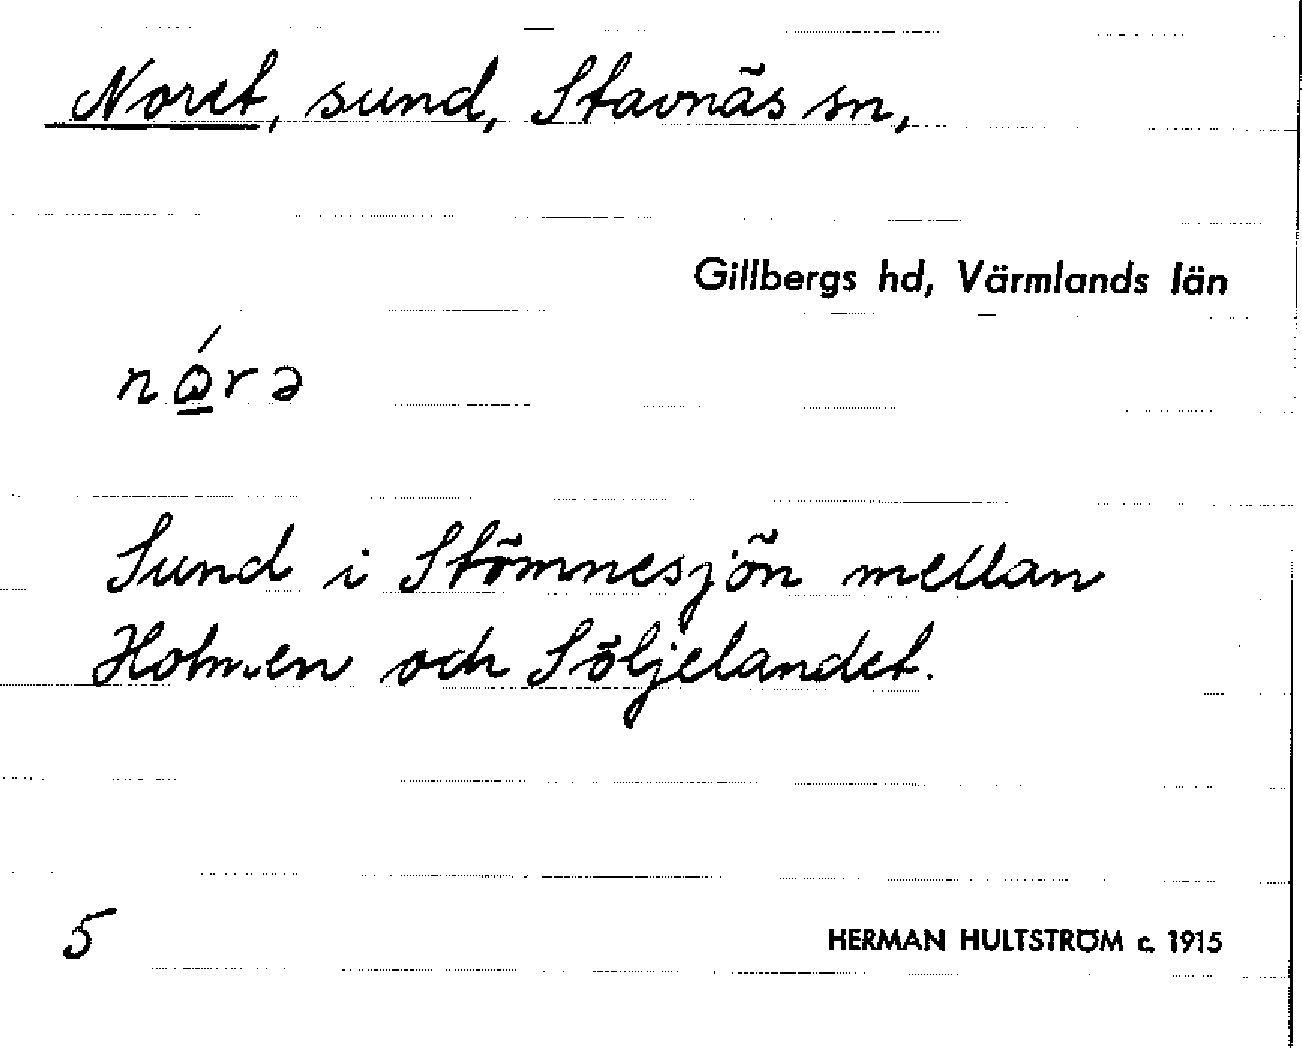 Noret, sund, Stavnäs sn,
Gillbergs hd, Värmlands län
nó̲rə
Sund i Stömnesjön mellan
Holmen och Söljelandet.
5
HERMAN HULTSTRÖM c. 1915